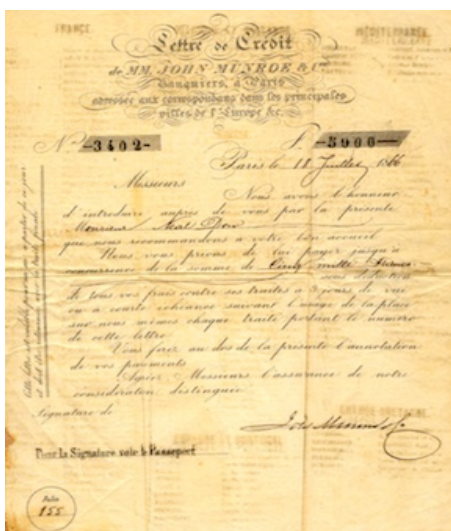 FRANCE
MÉDITERRANÉE
Lettre de Crédit
de MM. JOHN MUNROE & Cie
Banquiers, à Paris
adressée aux correspondans dans les principales
villes de l'Europe &c.
No -3402- F. -5000-
Paris le 18 Juillet 1866
Messieurs
Nous avons l'honneur
d'introduire auprès de vous par la présente
Monsieur Neal Dow
que nous recommandons à votre bon accueil
Nous vous prions de lui payer jusqu'à
concurrence de la somme de Cinq mille francs
sous déduction
de tous vos frais contre ses traites à 3 jours de vue
ou à courte échéance suivant l'usage de la place
sur nous mêmes chaque traite portant le numéro
de cette lettre
Vous ferez au dos de la présente l'annotation
de vos payements
Agréez Messieurs l'assurance de notre
considération distinguée
Signature de
John Munroe & Co
Pour la Signature voir le Passeport
GRANDE BRETAGNE
Folio
155